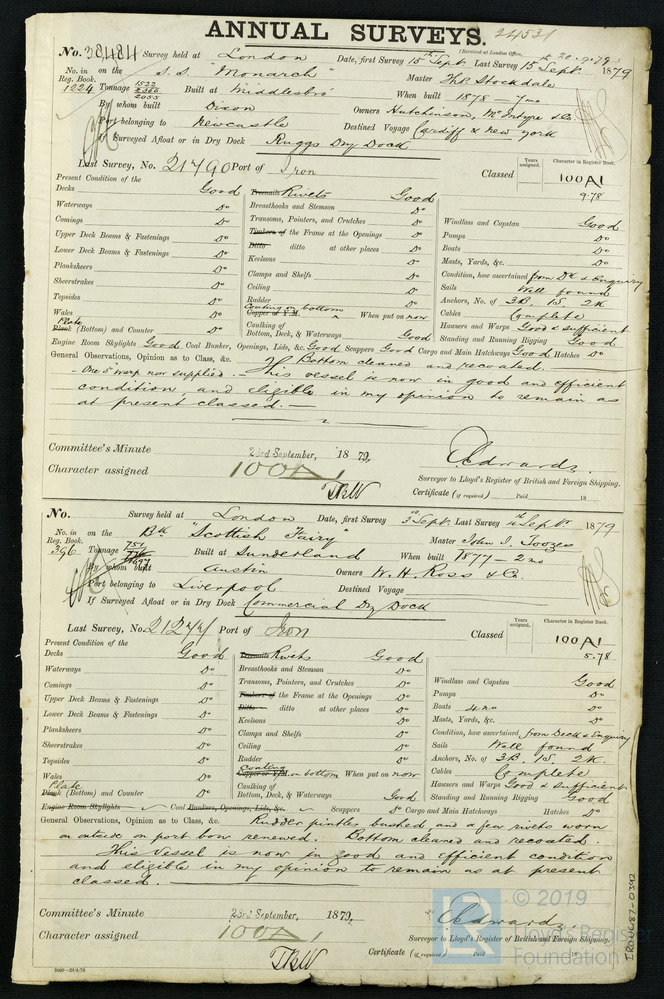 ANNUAL SURVEYS. 24531
(Received at London Office,
No. 38484 Survey held at London Date, first Survey 15th Sept. Last Survey 15th Sept. 1879
No. in on the S. S. "Monarch" Master Thos Stockdale
Reg. Book.
1224 Tonnage Built at Middlesbro' When built 1878 - 7mo
By whom built Dixon Owners Hutchinson, McIntyre & Co
Port belonging to Newcastle Destined Voyage Cardiff & New York
If Surveyed Afloat or in Dry Dock Ruggs Dry Dock
Last Survey, No. 21490 Port of Iron Classed Years assigned. Character in Register Book. 100A1
9.78
Present Condition of the
Decks Good Treenails Rivets Good
Waterways Do Breasthooks and Stemson Do
Comings Do Transoms, Pointers, and Crutches Do Windlass and Capstan Good
Upper Deck Beams & Fastenings Do Timbers of the Frame at the Openings Do Pumps Do
Lower Deck Beams & Fastenings Do Ditto ditto at other places Do Boats Do
Planksheers Do Keelsons Do Masts, Yards, &c. Do
Sheerstrakes Do Clamps and Shelfs Do Condition, how ascertained from Dk & Enquiry
Topsides Do Ceiling Do Sails Well found
Wales Do Rudder Do Anchors, No. of 3B, 1S, 2K
Plate Coating on bottom
Plank (Bottom) and Counter Do Copper or Y.M. When put on now Cables Complete
Caulking of Bottom, Deck, & Waterways Good Hawsers and Warps Good & sufficient
Standing and Running Rigging Good
Engine Room Skylights Good Coal Bunker, Openings, Lids, &c. Good Scuppers Good Cargo and Main Hatchways Good Hatches Do
General Observations, Opinion as to Class, &c. Bottom cleaned and recoated.
One 5" warp now supplied. This vessel is now in good and efficient
condition, and eligible in my opinion to remain as
at present classed. —
Committee's Minute 23rd September, 1879,
Character assigned 100A1
Edwards.
Surveyor to Lloyd's Register of British and Foreign Shipping.
Certificate (if required) Paid 18
No. Survey held at London Date, first Survey 3rd Sept. Last Survey 4th Sept 1879
No. in on the Bk "Scottish Fairy" Master John I. Toozes
Reg. Book.
396 Tonnage Built at Sunderland When built 1877 - 2mo
By whom built Austin Owners W. H. Ross & Co.
Port belonging to Liverpool Destined Voyage
If Surveyed Afloat or in Dry Dock Commercial Dry Dock
Last Survey, No. 21244 Port of Iron Classed Years assigned. Character in Register Book. 100A1
5.78
Present Condition of the
Decks Good Treenails Rivets Good
Waterways Do Breasthooks and Stemson Do
Comings Do Transoms, Pointers, and Crutches Do Windlass and Capstan Good
Upper Deck Beams & Fastenings Do Timbers of the Frame at the Openings Do Pumps Do
Lower Deck Beams & Fastenings Do Ditto ditto at other places Do Boats 4 no Do
Planksheers Do Keelsons Do Masts, Yards, &c. Do
Sheerstrakes Do Clamps and Shelfs Do Condition, how ascertained from Deck & Enquiry
Topsides Do Ceiling Do Sails Well found
Wales Do Rudder Do Anchors, No. of 3B, 1S, 2K.
Plate Coating
Plank (Bottom) and Counter Do Copper or Y.M. on bottom When put on now Cables Complete
Caulking of Bottom, Deck, & Waterways Good Hawsers and Warps Good & sufficient
Standing and Running Rigging Good
Engine Room Skylights Coal Bunkers, Openings, Lids, &c. Scuppers Do Cargo and Main Hatchways Hatches Do
General Observations, Opinion as to Class, &c. Rudder pintles bushed, and a few rivets worn
on outside on port bow renewed. Bottom cleaned and recoated
This vessel is now in good and efficient condition
and eligible in my opinion to remain as at present
classed. —
Committee's Minute 23rd September, 1879,
Character assigned 100A1
Edwards
Surveyor to Lloyd's Register of British and Foreign Shipping.
Certificate (if required) Paid 18
IRONUC87-0392
© 2019
Lloyd's Register
Foundation